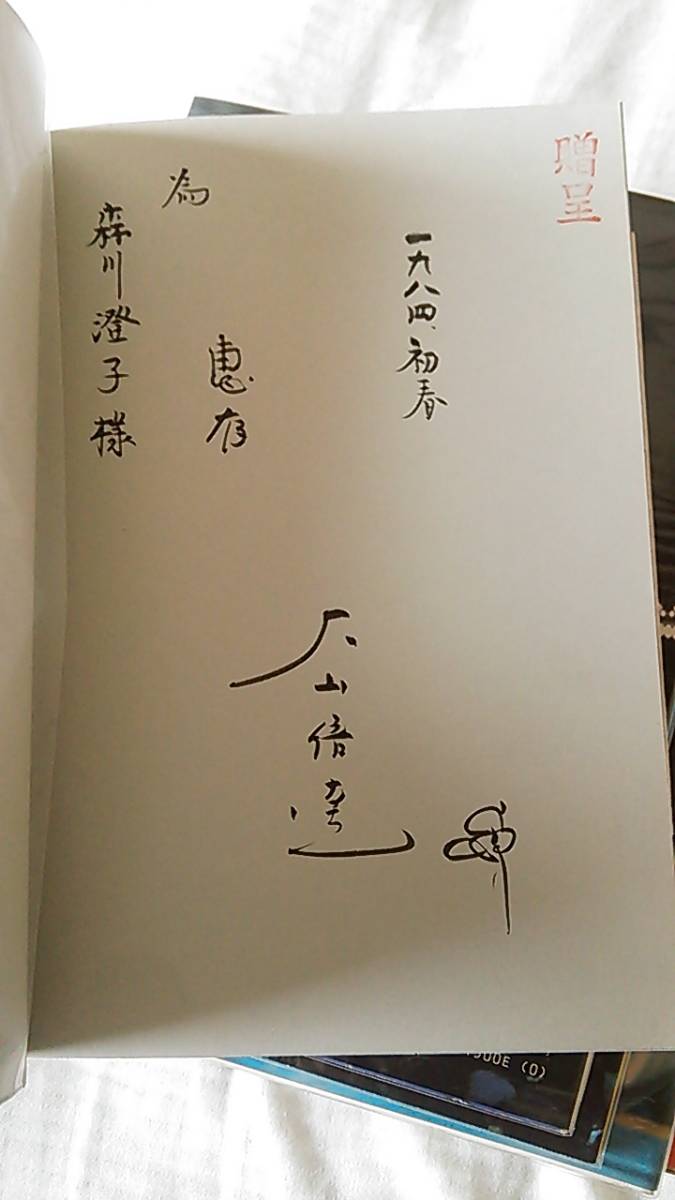 贈呈
一九八四、初春
為
惠存
森川澄子様
大山倍達